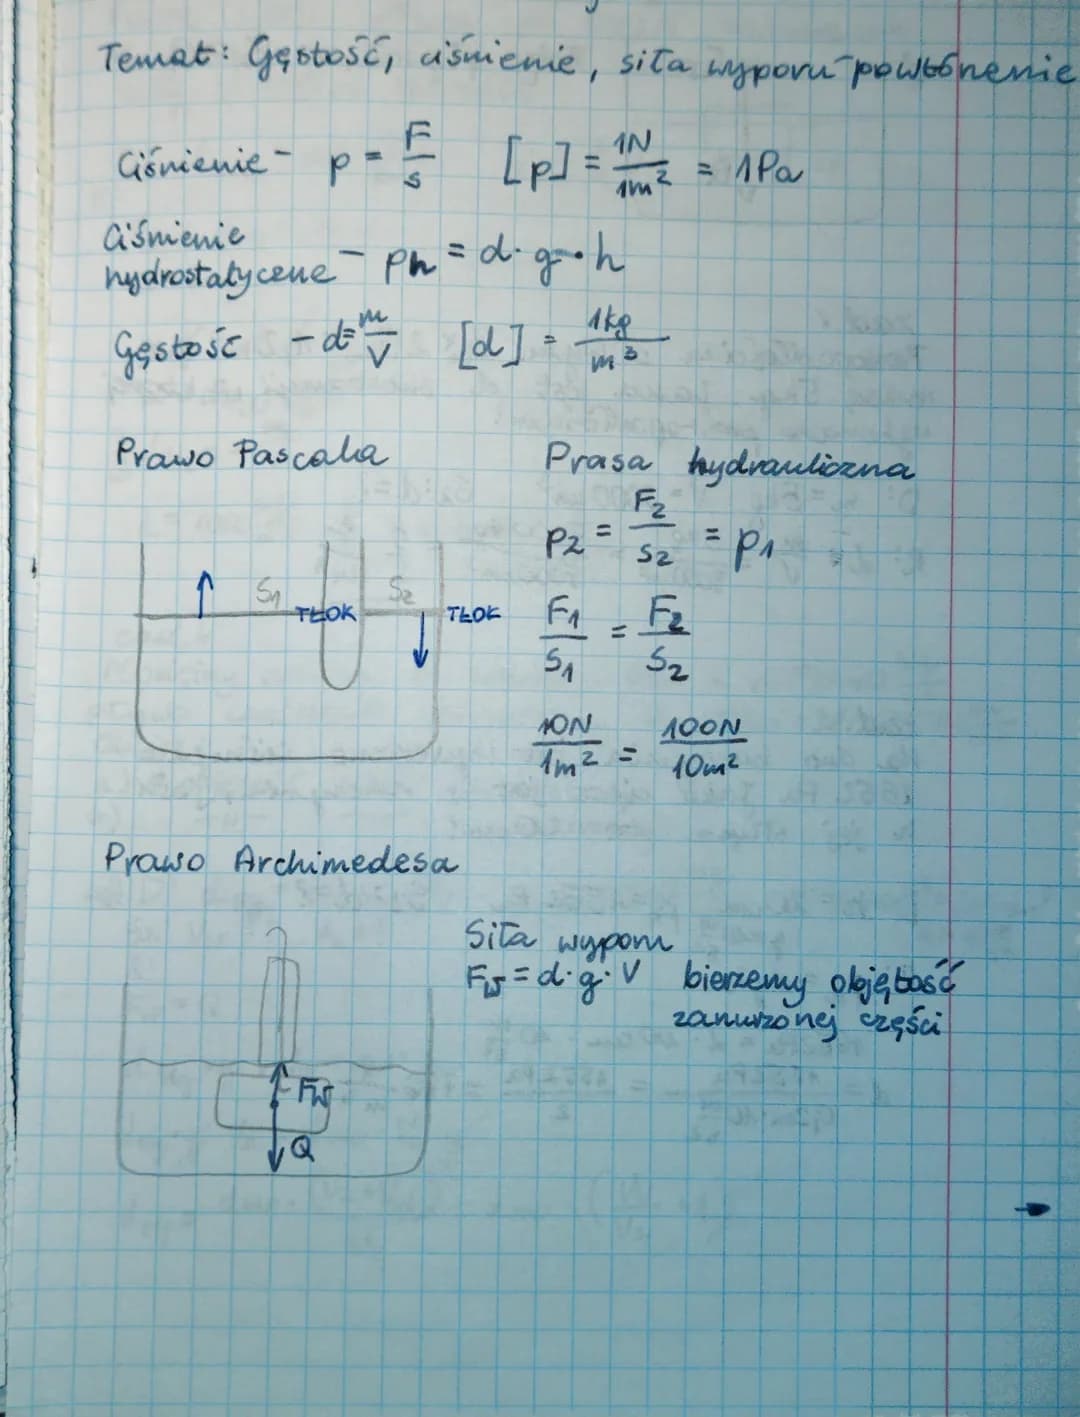 Temat: Gęstość, ciśnienie, siła wyporu - powtórzenie
Ciśnienie - p = F/s [p] = 1N/1m² = 1Pa
Ciśnienie
hydrostatyczne - ph = d · g · h
Gęstość - d = m/V [d] = 1kg/m³
Prawo Pascala
Prasa hydrauliczna
p2 = F2/s2 = p1
S1 S2
TŁOK TŁOK
F1/S1 = F2/S2
10N/1m² = 100N/10m²
Prawo Archimedesa
Siła wyporu
Fw = d · g · V bierzemy objętość
zanurzonej części
Fw
Q